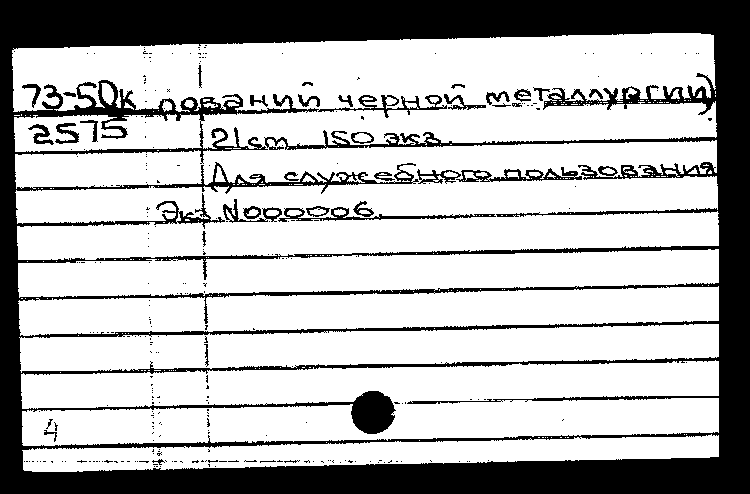 73-50к дований черной металлургии)
2575 21 cm. 150 экз.
Для служебного пользования
Экз. N000006.
4